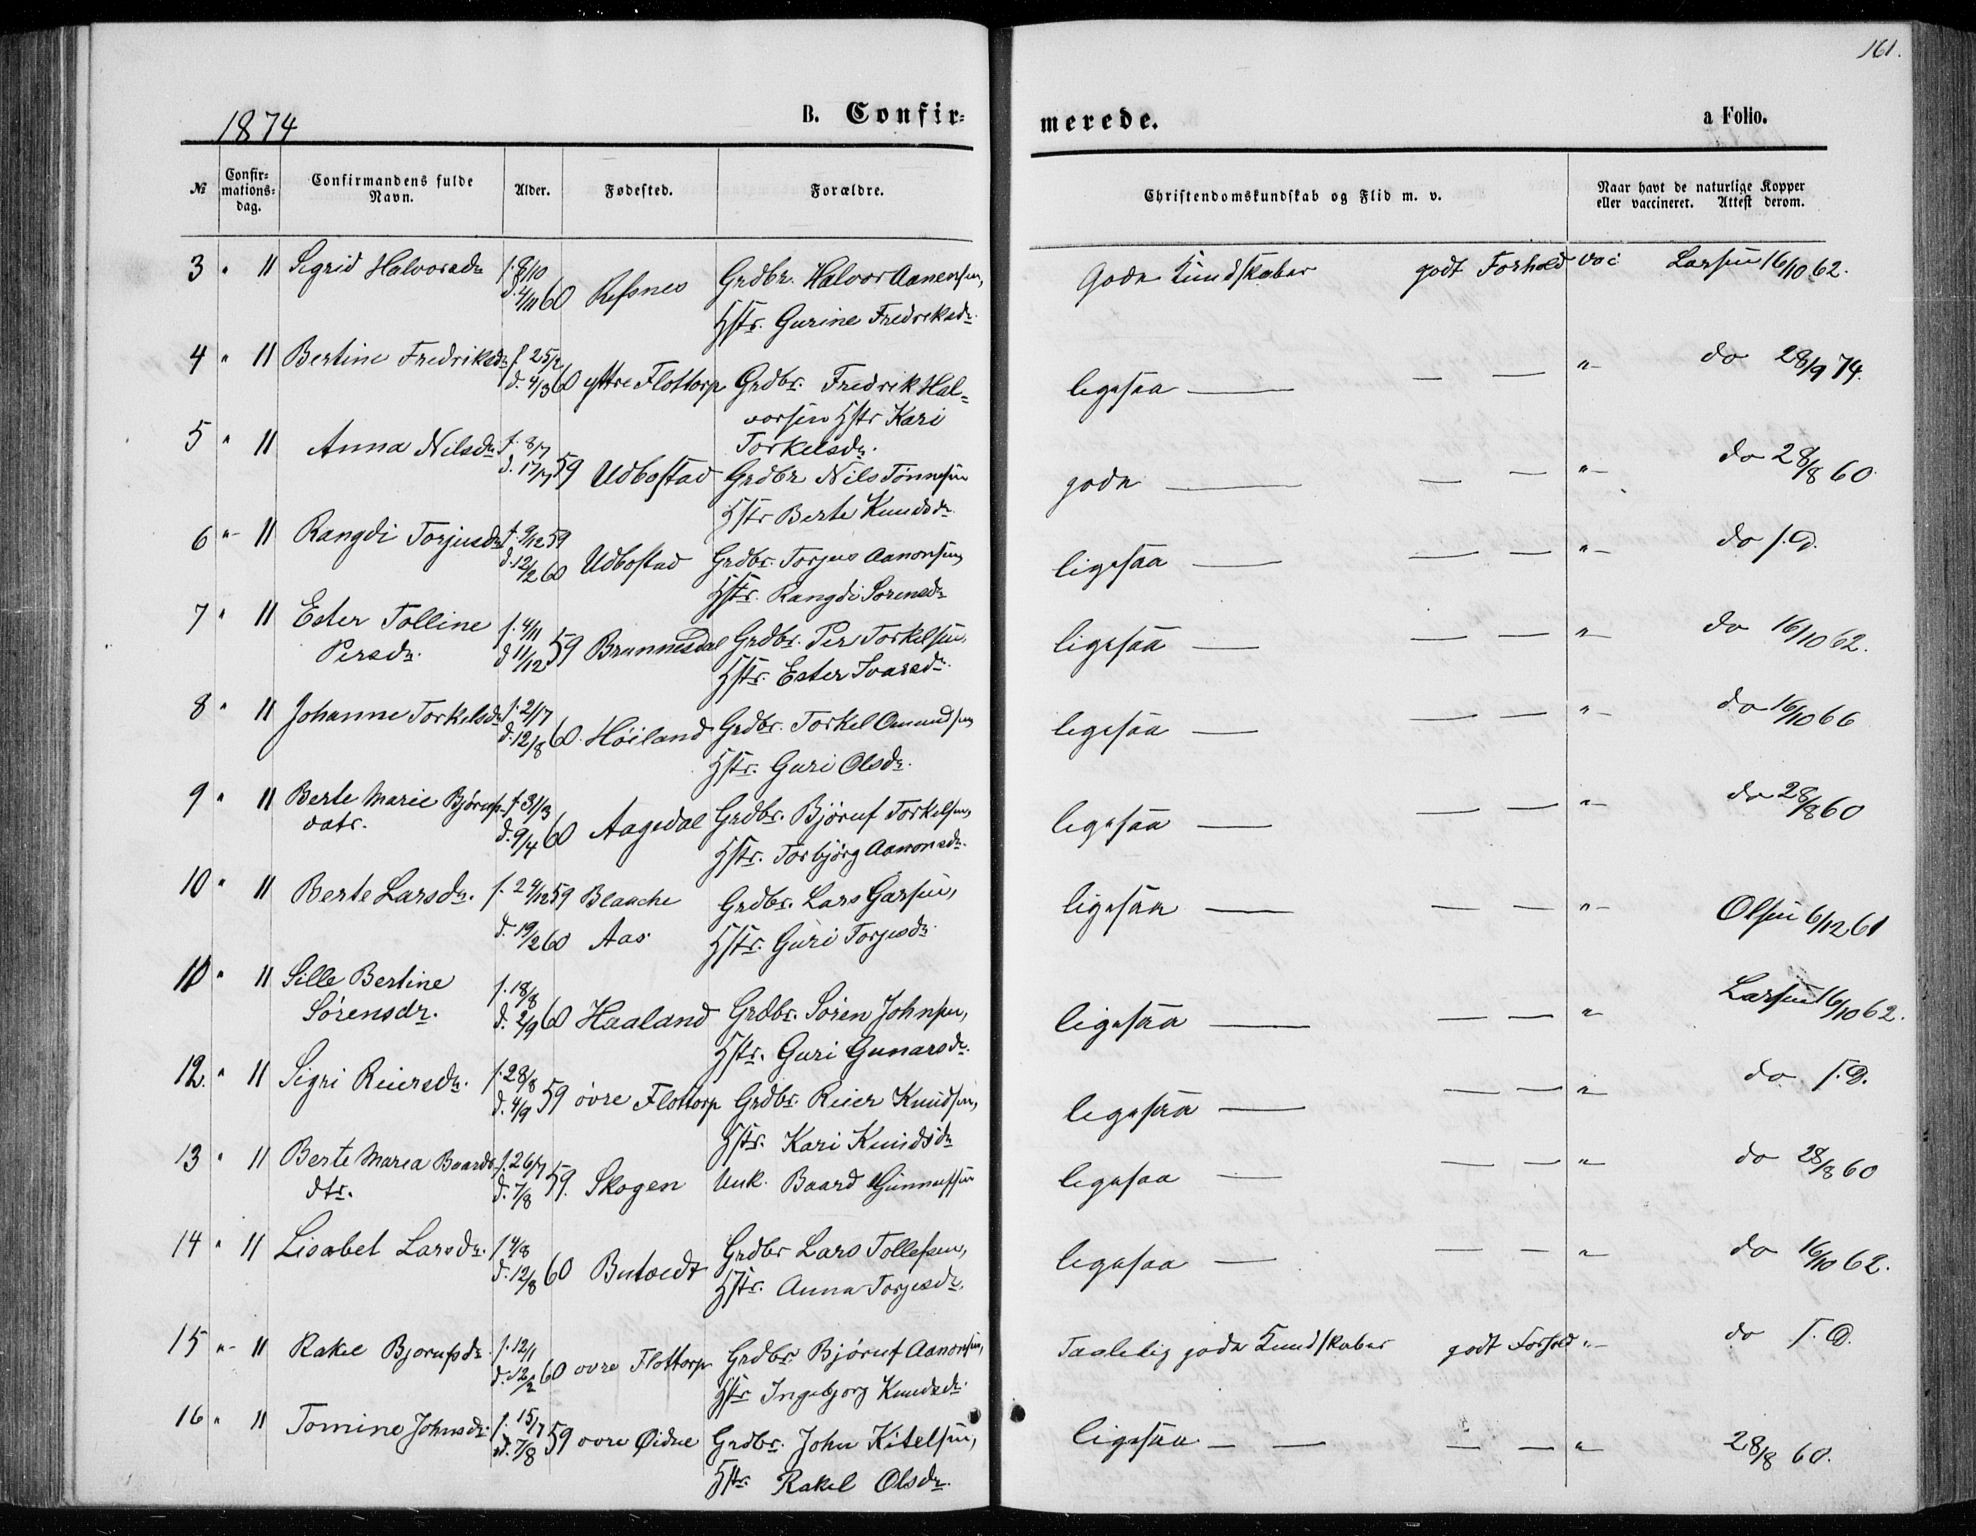 161.
1874
B. Confir-
merede.
a Folio.
№
Confir-
mations-
dag.
Confirmandens fulde
Navn.
Alder.
Fødested.
Forældre.
Christendomskundskab og Flid m. v.
Naar havt de naturlige Kopper
eller vaccineret. Attest derom.
3 " 11 Sigrid Halvorsdr f. 8/10 Grdbr. Halvor Aanensen,
d. 4/11 60 Refsnes
Hstr. Gurine Fredriksdr.
Gode Kundskaber godt Forhold vac Larsen 16/10 62.
4 " 11 Bertine Fredriksdr f 25/2
d. 4/3 60 yttre Flottorp Grdbr. Fredrik Hal-
vorsen Hstr Kari
Torkelsdr.
ligesaa — — — "- do 28/9 74.
5 " 11 Anna Nilsdr f. 8/7
d. 17/7 59 Udbostad Grdbr Nils Tønnesen
Hstr Berte Knudsdr.
gode — — — "- do 28/8 60.
6 "- 11 Rangdi Torjusdr f. 9/12 59
d. 12/2 60 Udbostad Grdbr. Torjus Aanonsen,
Hstr. Rangdi Sørensdr
ligesaa — — — "- do s. D.
7 " 11 Ester Tolline f. 4/11
Persdr. d 11/12 59 Brunnesdal Grdbr. Per Torkelsen,
Hstr. Ester Ivarsdr.
ligesaa — — — "- do 16/10 62.
8 " 11 Johanne Torkelsdr f. 21/7
d. 12/8 60. Høiland Grdbr. Torkel Omundsen
Hstr. Guri Olsdr.
ligesaa — — — "- do 16/10 66
9 " 11 Berte Marie Bjørufs- f 31/3
datr. d. 9/4 60 Aagedal Grdbr. Bjøruf Torkelsen,
Hstr. Torbjørg Aanonsdr.
ligesaa — — — "- do 28/8 60
10 " 11 Berte Larsdr. f. 29/12 59 Blauche Grdbr. Lars Garsen,
d. 19/2 60 Aas. Hstr. Guri Torjusdr.
ligesaa — — — "- Olsen 6/12 61
11 " 11 Sille Bertine f. 18/8
Sørensdr. d. 2/9 60 Haaland Grdbr. Søren Johnsen,
Hstr. Guri Gunarsdr.
ligesaa — — — " Larsen 16/10 62.
12. " 11 Sigri Reiersdr. f. 28/8
d. 4/9 59 øvre Flottorp Grdbr. Reier Knudsen,
Hstr. Kari Knudsdr
ligesaa — — — "- do s. D.
13 " 11 Berte Maria Baards- f. 26/7
dtr. d. 7/8 59. Skogen Unk. Baard Gunnufsen
ligesaa — — — "- do 28/8 60
14 " 11 Lisabet Larsdr. f 4/8 Grdbr Lars Tollefsen,
d. 12/8 60 Butvedt Hstr. Anna Torjusdr.
ligesaa — — — "- do 16/10 62.
15 "- 11 Rakel Bjorufsdr. f. 12/1
d. 12/2 60 øvre Flottorp Grdbr Bjøruf Aanonsen,
Hstr Ingebjorg Knudsdr.
Taalelig gode Kundskaber godt Forhold "- do s. D.
16 " 11 Tomine Johnsdr. f. 15/7
d. 7/8 59 øvre Øidne Grdbr. John Kitelsen,
Hstr. Rakel Olsdr.
ligesaa — — — — "- 28/8 60.